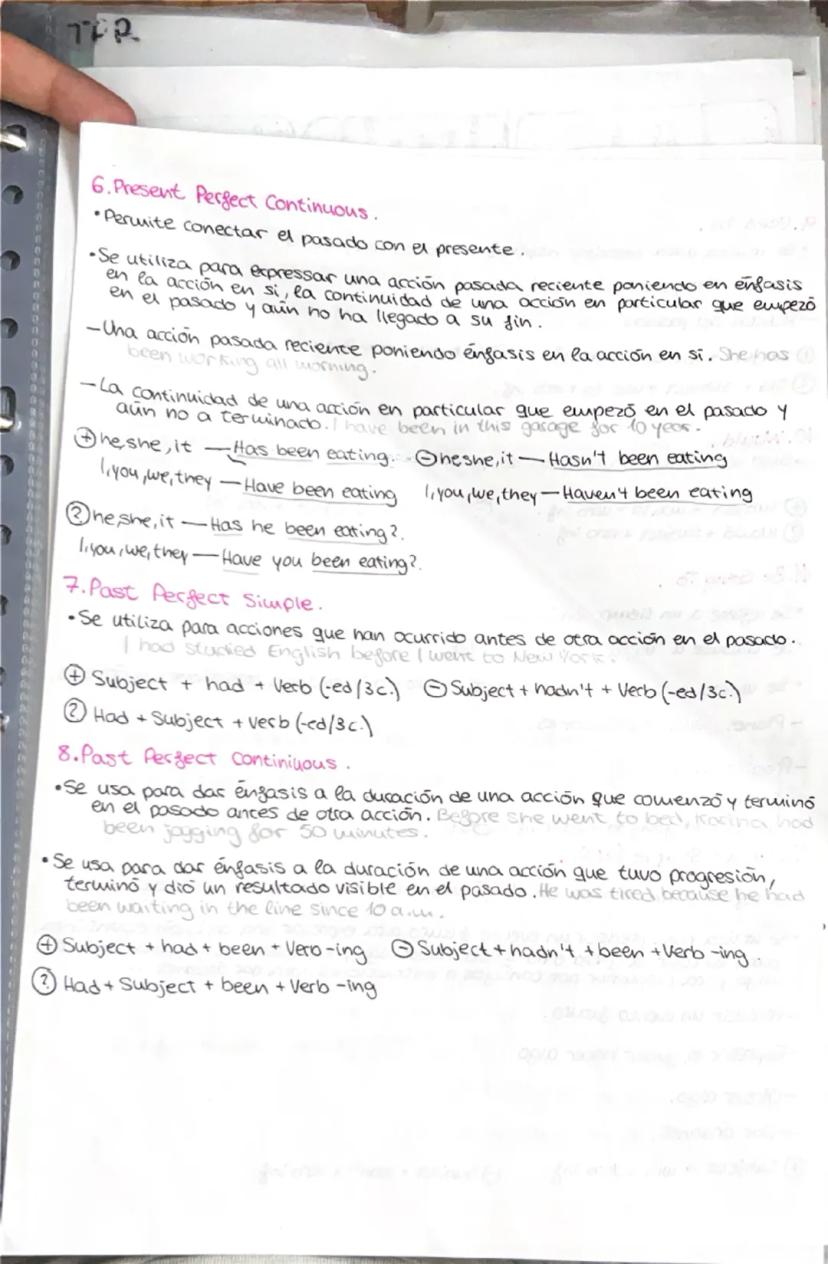 TFR
6. Present Perfect Continuous.
• Permite conectar el pasado con el presente.
• Se utiliza para expressar una acción pasada reciente poniendo en énfasis
en la acción en si, la continuidad de una acción en particular que empezó
en el pasado y aún no ha llegado a su fin.
– Una acción pasada reciente poniendo énfasis en la acción en si. She has
been working all morning.
– La continuidad de una acción en particular que empezó en el pasado y
aún no a terminado. I have been in this garage for 10 year.
⊕ he, she, it — Has been eating. ⊖ he she, it — Hasn't been eating
I, you, we, they — Have been eating I, you, we, they — Haven't been eating
? he, she, it — Has he been eating?.
I, you, we, they — Have you been eating?.
7. Past Perfect Simple.
• Se utiliza para acciones que han ocurrido antes de otra acción en el pasado.
I had studied English before I went to New York.
⊕ Subject + had + Verb (-ed/3c.) ⊖ Subject + hadn't + Verb (-ed/3c.)
? Had + Subject + verb (-ed/3c.)
8. Past Perfect Continiuous.
• Se usa para dar énfasis a la duración de una acción que comenzó y terminó
en el pasado antes de otra acción. Before she went to bed, Karina had
been jogging for 50 minutes.
• Se usa para dar énfasis a la duración de una acción que tuvo progresión,
terminó y dió un resultado visible en el pasado. He was tired because he had
been waiting in the line since 10 a.m.
⊕ Subject + had + been + Verb -ing ⊖ Subject + hadn't + been + Verb -ing.
? Had + Subject + been + Verb -ing